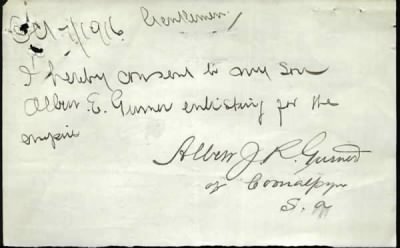 Oct 7/1916 Gentlemen,
I hereby consent to my son
Albert E. Gurner enlisting for the
empire
Albert J. R. Gurner
of Coonalpyn
S. a